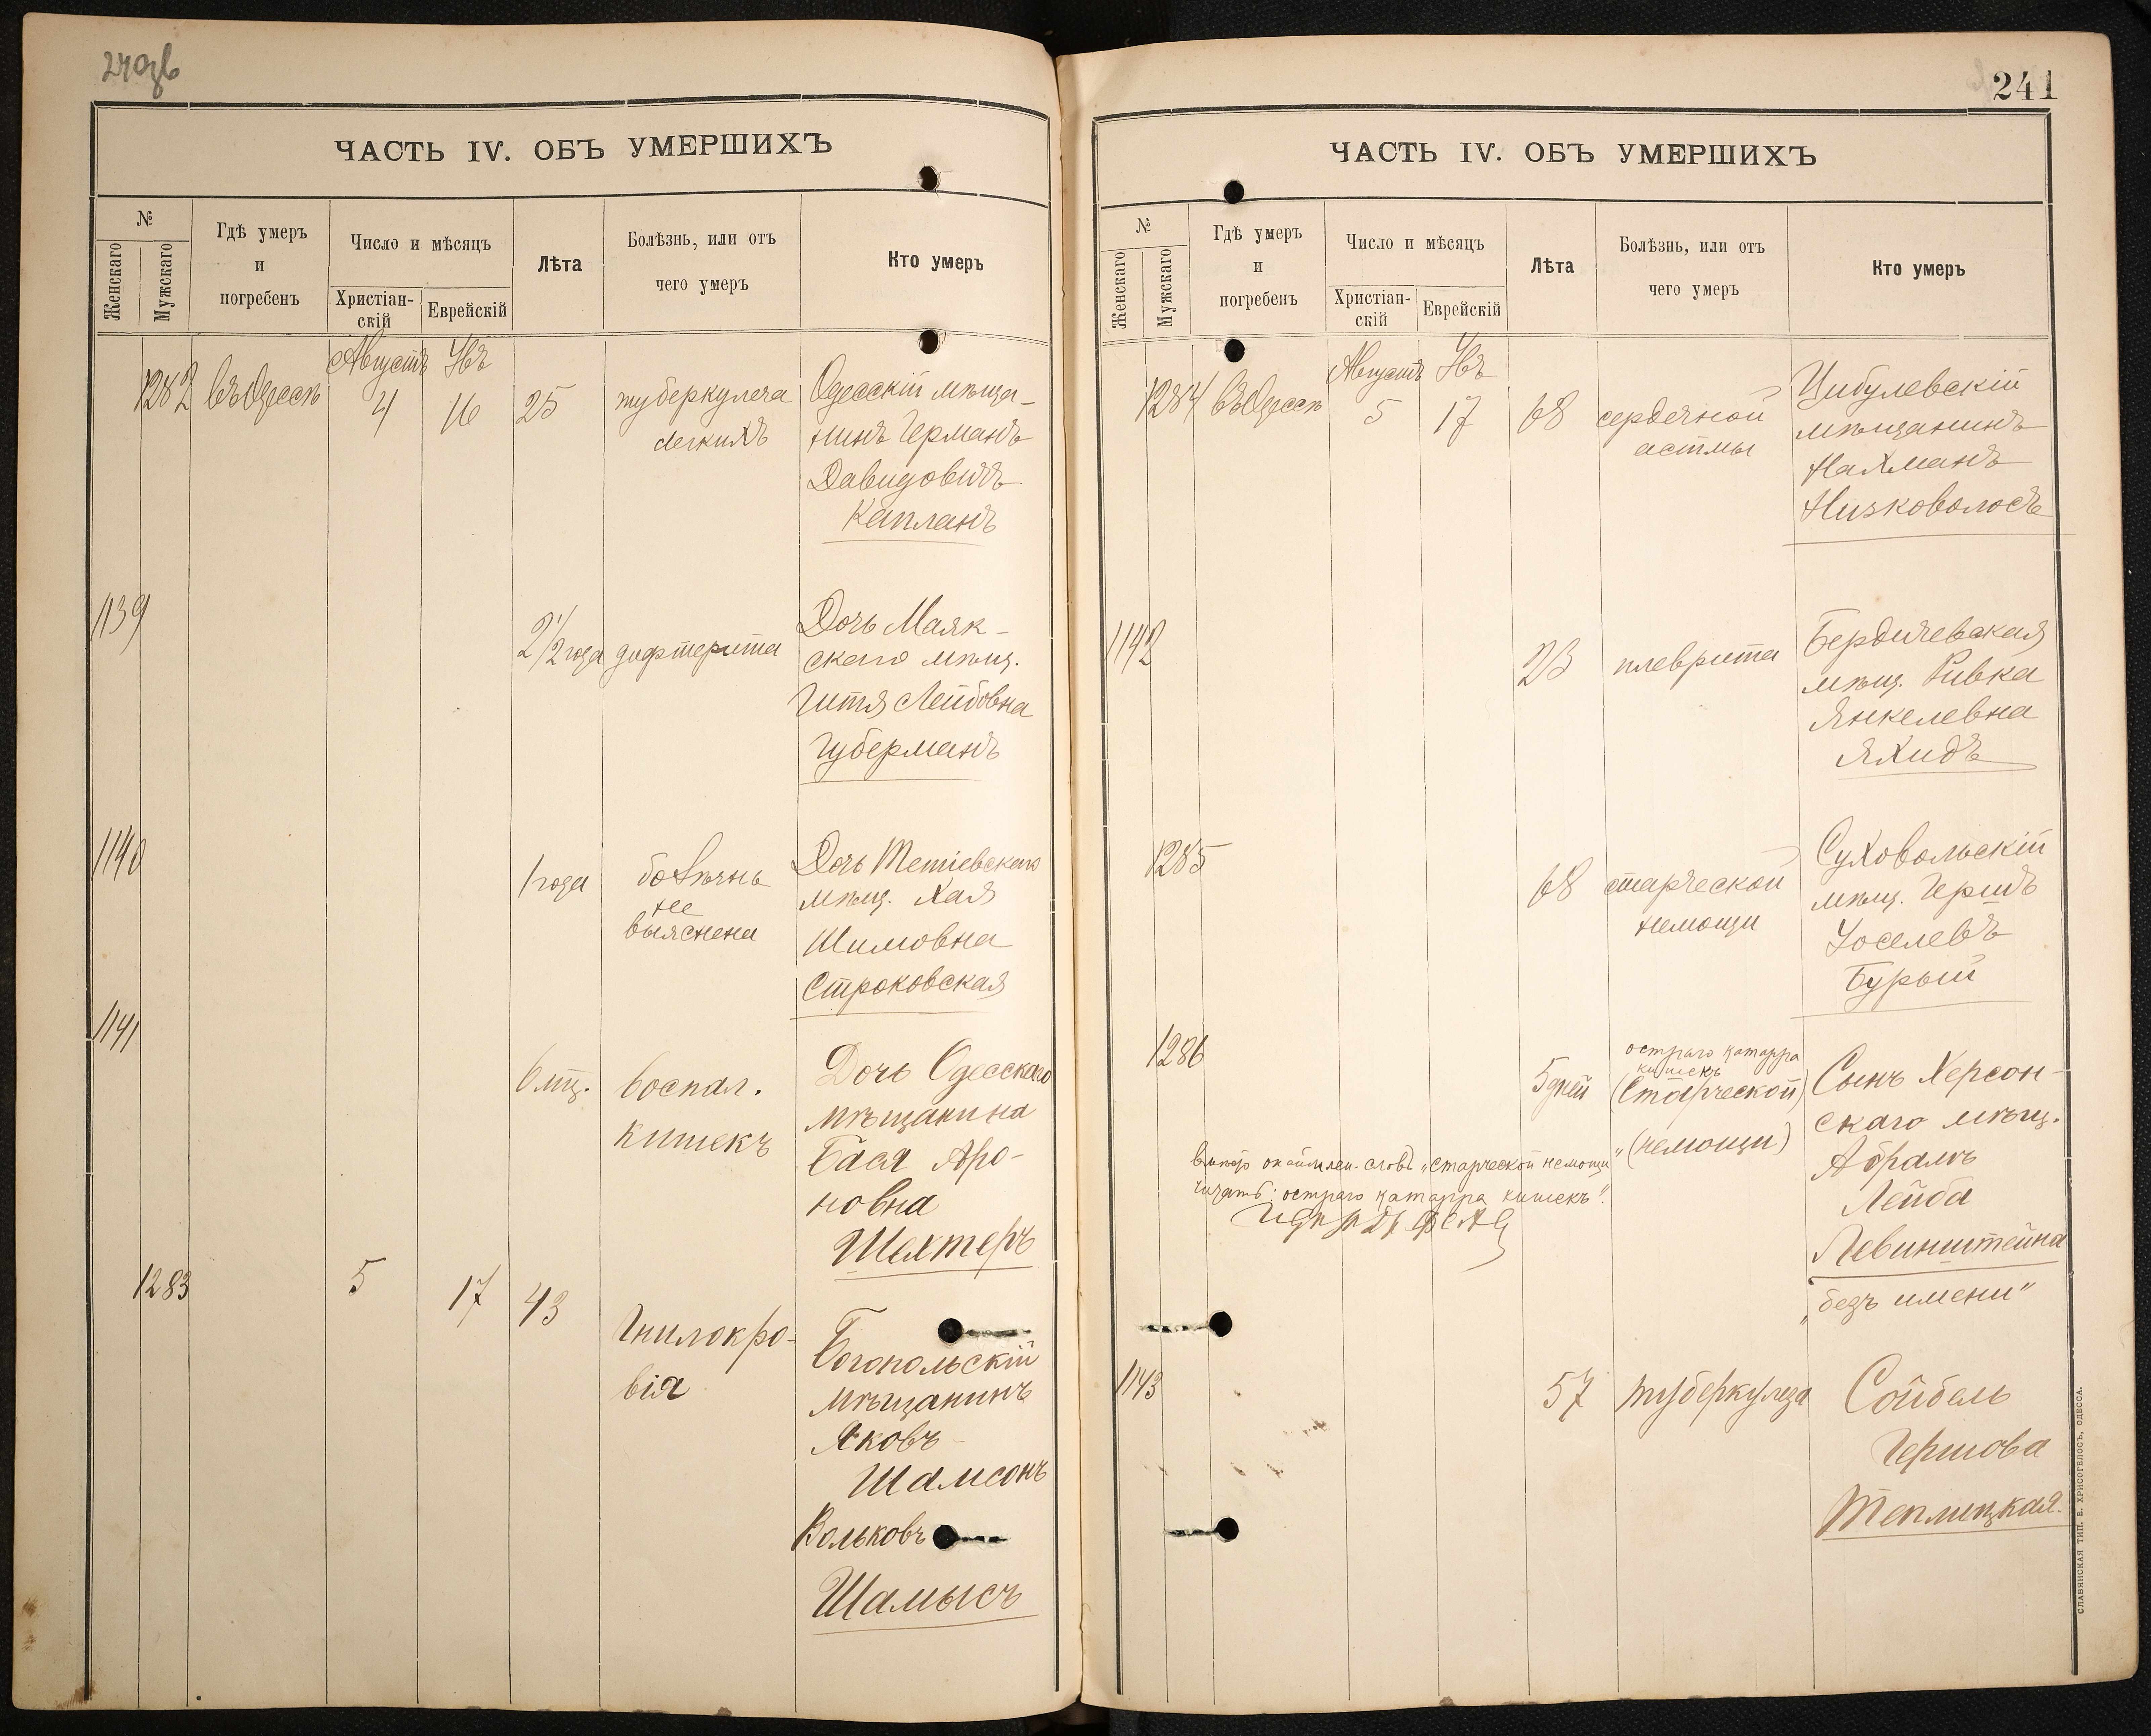 240зв
ЧАСТЬ IV. ОБЪ УМЕРШИХЪ
№
Женскаго
Мужскаго
Гдѣ умеръ
и
погребенъ
Число и мѣсяцъ
Христіан-
скій
Еврейскій
Лѣта
Болѣзнь, или отъ
чего умеръ
Кто умеръ
Августъ
1282
въ Одессѣ
4
16
25
туберкулеза
легкихъ
Одесскій мѣща-
нинъ Германъ
Давидовичъ
Капланъ
1139
2 1/2 года
дифтерита
Дочь Маяк-
скаго мѣщ.
Гитля Лейбовна
Губерманъ
1140
1 года
болѣзнь
не
выяснена
Дочь Тетіевскаго
мѣщ. Хая
Шимовна
Строковская
1141
6 мц.
воспал.
кишекъ
Дочь Одесскаго
мѣщанина
Бася Аро-
новна
Шехтеръ
1283
5
17
43
Гнилокро-
вія
Богопольскій
мѣщанинъ
Яковъ-
Шамсонъ
Вольковъ
Шамысъ
241
ЧАСТЬ IV. ОБЪ УМЕРШИХЪ
№
Женскаго
Мужскаго
Гдѣ умеръ
и
погребенъ
Число и мѣсяцъ
Христіан-
скій
Еврейскій
Лѣта
Болѣзнь, или отъ
чего умеръ
Кто умеръ
Августъ
1284
въ Одессѣ
5
17
68
сердечной
астмы
Цибулевскій
мѣщанинъ
Нахманъ
Низковолосъ
1142
23
плеврита
Бердичевская
мѣщ. Ривка
Янкелевна
Яхидъ
1285
68
старческой
немощи
Суховольскій
мѣщ. Гершъ
Іоселевъ
Бурый
1286
5 дней
остраго катарра
кишекъ
(Старческой)
(немощи)
Сынъ Херсон-
скаго мѣщ.
Абрамъ
Лейба
Левинштейна
"безъ имени"
словъ "старческой немощи"
читать: остраго катарра кишекъ".
1143
57
туберкулеза
Сойбель
Гершова
Теплицкая
СЛАВЯНСКАЯ ТИП. Е. ХРИСОГЕЛОСЪ, ОДЕССА.